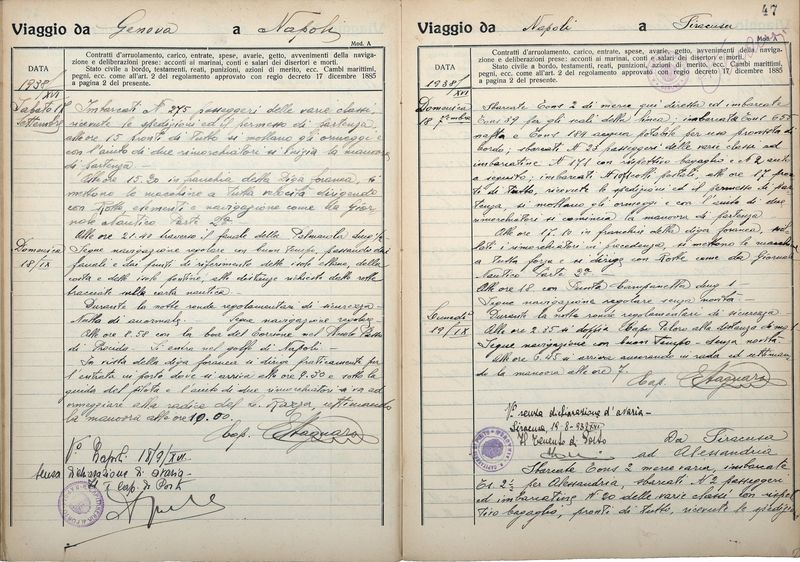 Viaggio da Genova a Napoli
Mod. A
DATA
Contratti d'arruolamento, carico, entrate, spese, avarie, getto, avvenimenti della naviga-
zione e deliberazioni prese: acconti ai marinai, conti e salari dei disertori e morti.
Stato civile a bordo, testamenti, reati, punizioni, azioni di merito, ecc. Cambi marittimi,
pegni, ecc. come all'art. 2 del regolamento approvato con regio decreto 17 dicembre 1885
a pagina 2 del presente.
1938/XVI
Sabato
Settembre
Imbarcati N. 275 passeggeri delle varie classi,
ricevute le spedizioni ed il permesso di partenza,
alle ore 15 pronti di tutto si mollano gli ormeggi e
con l'aiuto di due rimorchiatori si inizia la manovra
di partenza -
Alle ore 15.30 in franchia della diga foranea, si
mettono le macchine a tutta velocità dirigendo
con Rotte, elementi e navigazione come da Gior
nale Nautico Parte 2ª
Alle ore 21.40 traverso il fanale della Palmarola
Domenica
18/IX
Segue navigazione regolare con buon tempo, passando
fanali e dai punti di riferimento delle isole, della
costa e delle isole pontine, alle distanze richieste dalle rotte
tracciate sulla carta nautica.
Durante la notte ronde regolamentari di sicurezza -
Nulla di anormale. Segue navigazione regolare -
Alle ore 8.58 con la boa del
di Procida. Si entra nel golfo di Napoli
In vista della diga foranea si dirige praticamente per
l'entrata in porto dove si arriva alle ore 9.30 e sotto la
guida del pilota e l'aiuto di due rimorchiatori si va ad
ormeggiare alla radice del ultimando
la manovra alle ore 10.00
Cap.
Vº Napoli 18/9/XVI
senza dichiarazione di avaria -
Il T. Cap. di Porto
47
Viaggio da Napoli a Siracusa
Mod.
DATA
Contratti d'arruolamento, carico, entrate, spese, avarie, getto, avvenimenti della naviga-
zione e deliberazioni prese: acconti ai marinai, conti e salari dei disertori e morti.
Stato civile a bordo, testamenti, reati, punizioni, azioni di merito, ecc. Cambi marittimi,
pegni, ecc. come all'art. 2 del regolamento approvato con regio decreto 17 dicembre 1885
a pagina 2 del presente.
1938/XVI
Domenica
18 7mbre
Sbarcate Tons 2 di merce qui diretta ed imbarcate
Tons 89 per gli scali della linea; imbarcata Tons 655
nafta e Tons 184 acqua potabile per uso provvista di
bordo; sbarcati N. 23 passeggeri delle varie classi ed
imbarcatine N. 171 con rispettivo bagaglio e N. 2 auto
a seguito; imbarcati effetti postali, alle ore 17 pron
ti di tutto, ricevute le spedizioni ed il permesso di par
tenza, si mollano gli ormeggi e con l'aiuto di due
rimorchiatori si comincia la manovra di partenza -
Alle ore 17.10 in franchia della diga foranea,
i rimorchiatori in precedenza, si mettono le macchine
a tutta forza e si dirige con Rotte come da Giornale
Nautico Parte 2ª
Alle ore 18 con Punta Campanella dmg 1 -
Segue navigazione regolare senza novità -
Lunedì
19/IX
Durante la notte ronde regolamentari di sicurezza
Alle ore 2.35 si doppia Capo Peloro alla distanza di mg 1
Segue navigazione con buon tempo - senza novità -
Alle ore 6.45 si arriva ancorando in rada ed ultiman
do la manovra alle ore 7.
Cap.
Vº senza dichiarazione d'avaria -
Siracusa, 19-8-938/XVI
Il Tenente di Porto
Da Siracusa
ad Alessandria
Sbarcate Tons 2 merce varia, imbarcate
Ts. 2½ per Alessandria, sbarcati N. 2 passeggeri
ed imbarcatine N. 20 delle varie classi con rispet
tivo bagaglio, pronti di tutto, ricevute le spedizioni